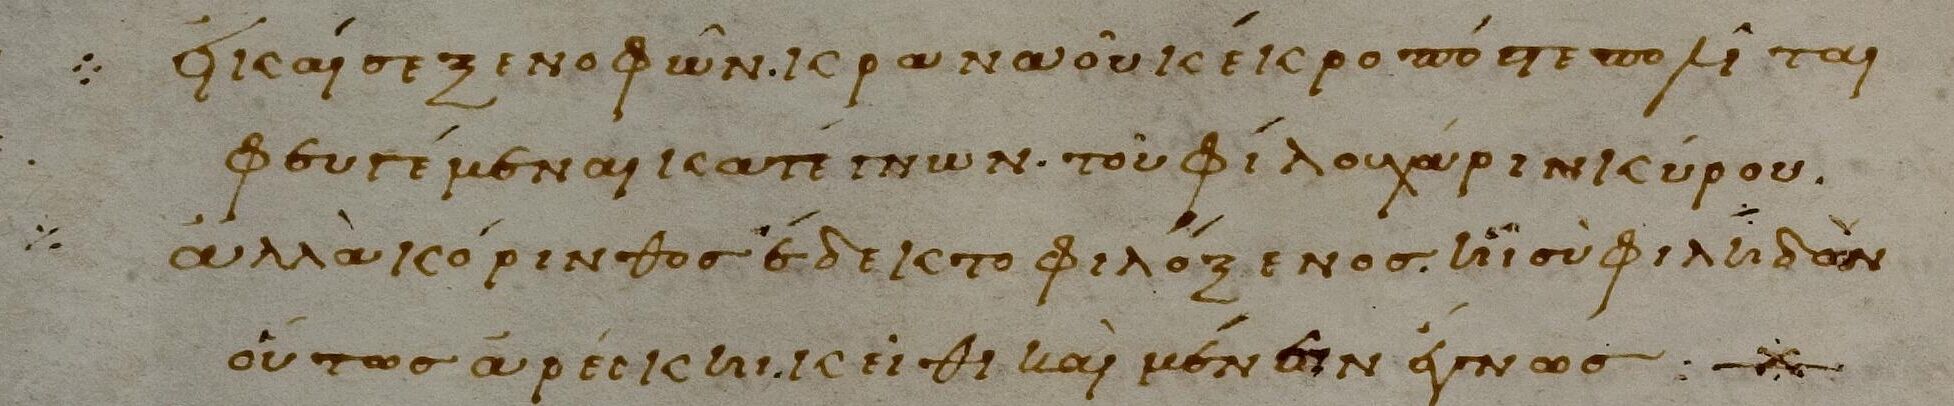 εἰ καί σε ξενοφῶν. κραναοῦ κέκροπός τε πολῖται
φευγέμεναι κατέγνων. τοῦ φίλου χάριν κύρου.
ἀλλὰ κόρινθος ἔδεκτο φιλόξενος. ἧι σὺ φιληδῶν
οὕτως ἀρέσκηι. κεῖθι καὶ μένειν ἔγνως :